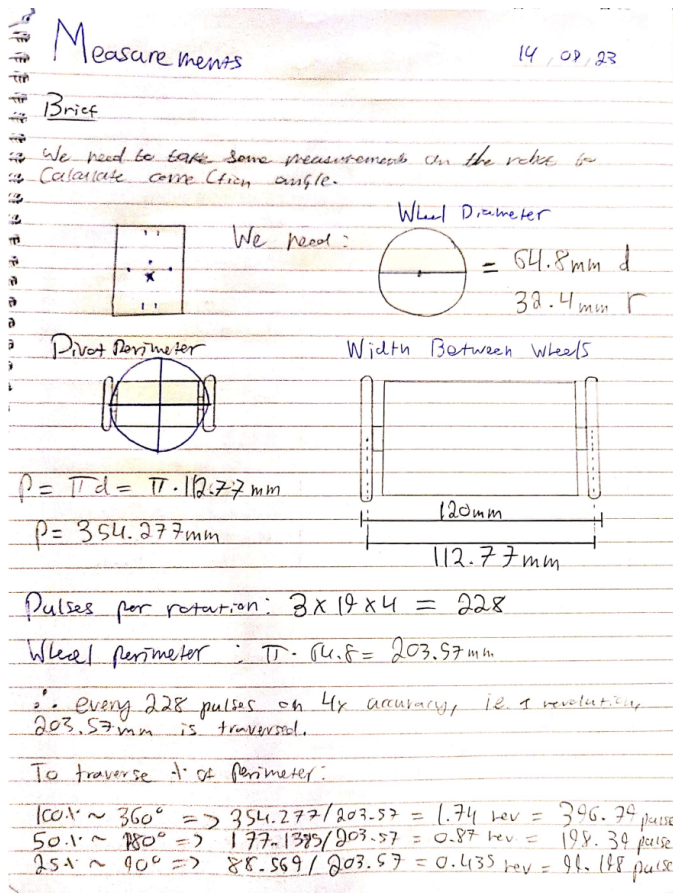 Measurements
14, 08, 23
Brief
We need to take some measurements on the robot to
Calculate correction angle.
We need:
Wheel Diameter
= 64.8mm d
32.4mm r
Pivot Perimeter
Width Between Wheels
P = πd = π·112.77mm
P = 354.277mm
120mm
112.77mm
Pulses per rotation: 3 x 19 x 4 = 228
Wheel perimeter : π · 64.8 = 203.57mm
∴ every 228 pulses on 4x accuracy, ie. 1 revolution,
203.57mm is traversed.
To traverse % of perimeter:
100% ~ 360° => 354.277/203.57 = 1.74 rev = 396.79 pulse
50% ~ 180° => 177.1385/203.57 = 0.87 rev = 198.39 pulse
25% ~ 90° => 88.569/203.57 = 0.435 rev = 99.198 pulse